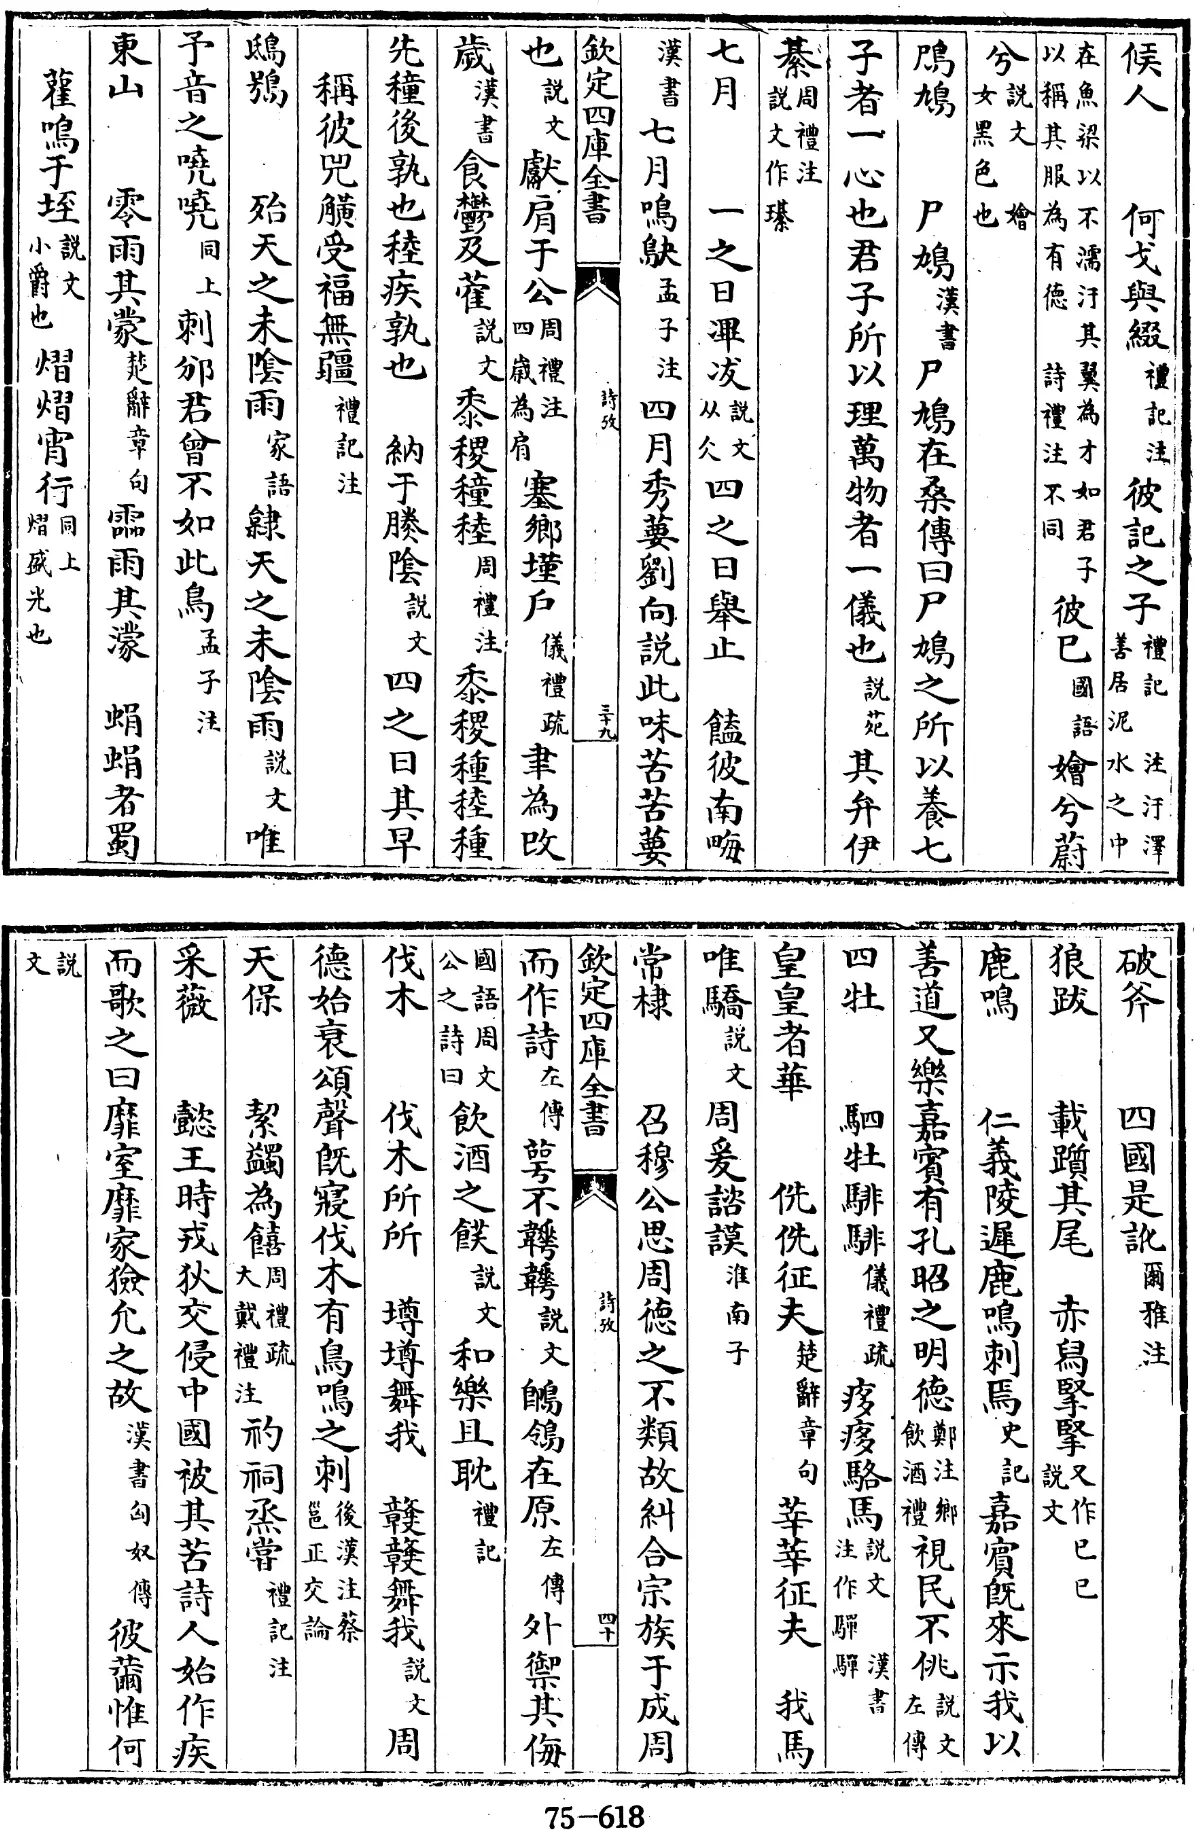 候人　何戈與綴禮記注彼記之子禮記　注汙澤善居泥水之中
在魚梁以不濡汙其翼為才如君子以稱其服為有德　詩禮注不同　彼己國語　嬒兮蔚
兮說文　嬒女黑色也
鳲鳩　尸鳩漢書　尸鳩在桑傳曰尸鳩之所以養七
子者一心也君子所以理萬物者一儀也說苑　其弁伊
綦周禮注說文作璂
七月　一之日滭冹說文从仌四之日舉止　饁彼南畮
漢書　七月鳴鴃孟子注　四月秀葽劉向說此味苦苦葽
欽定四庫全書　詩攷　三十九
也說文　獻肩于公周禮注四歲為肩　塞鄉墐戶儀禮疏　聿為改
歲漢書　食鬱及雚說文　黍稷穜稑周禮注　黍稷種稑種
先穜後孰也稑疾孰也　納于勝陰說文　四之日其早
稱彼兕觵受福無疆禮記注
鴟鴞　殆天之未陰雨家語　隸天之未陰雨說文　唯
予音之嘵嘵同上　刺邠君曾不如此鳥孟子注
東山　零雨其蒙楚辭章句　霝雨其濛　蜎蜎者蜀
雚鳴于垤說文小爵也　熠熠宵行同上熠盛光也
破斧　四國是訛爾雅注
狼跋　載躓其尾　赤舄掔掔又作己己說文
鹿鳴　仁義陵遲鹿鳴刺焉史記　嘉賓既來示我以
善道又樂嘉賓有孔昭之明德鄭注鄉飲酒禮　視民不佻說文左傳
四牡　駟牡騑騑儀禮疏　痑痑駱馬說文　漢書注作驒驒
皇皇者華　侁侁征夫楚辭章句　莘莘征夫　我馬
唯驕說文　周爰諮謨淮南子
常棣　召穆公思周德之不類故糾合宗族于成周
欽定四庫全書　詩攷　四十
而作詩左傳　萼不韡韡說文　鶺鴒在原左傳　外禦其侮
國語周文公之詩曰　飲酒之䬶說文　和樂且耽禮記
伐木　伐木所所　墫墫舞我　竷竷舞我說文　周
德始衰頌聲既寢伐木有鳥鳴之刺後漢注蔡邕正交論
天保　絜蠲為饎周禮疏大戴禮注　礿祠烝嘗禮記注
采薇　懿王時戎狄交侵中國被其苦詩人始作疾
而歌之曰靡室靡家獫允之故漢書匈奴傳　彼薾惟何
說文
75—618